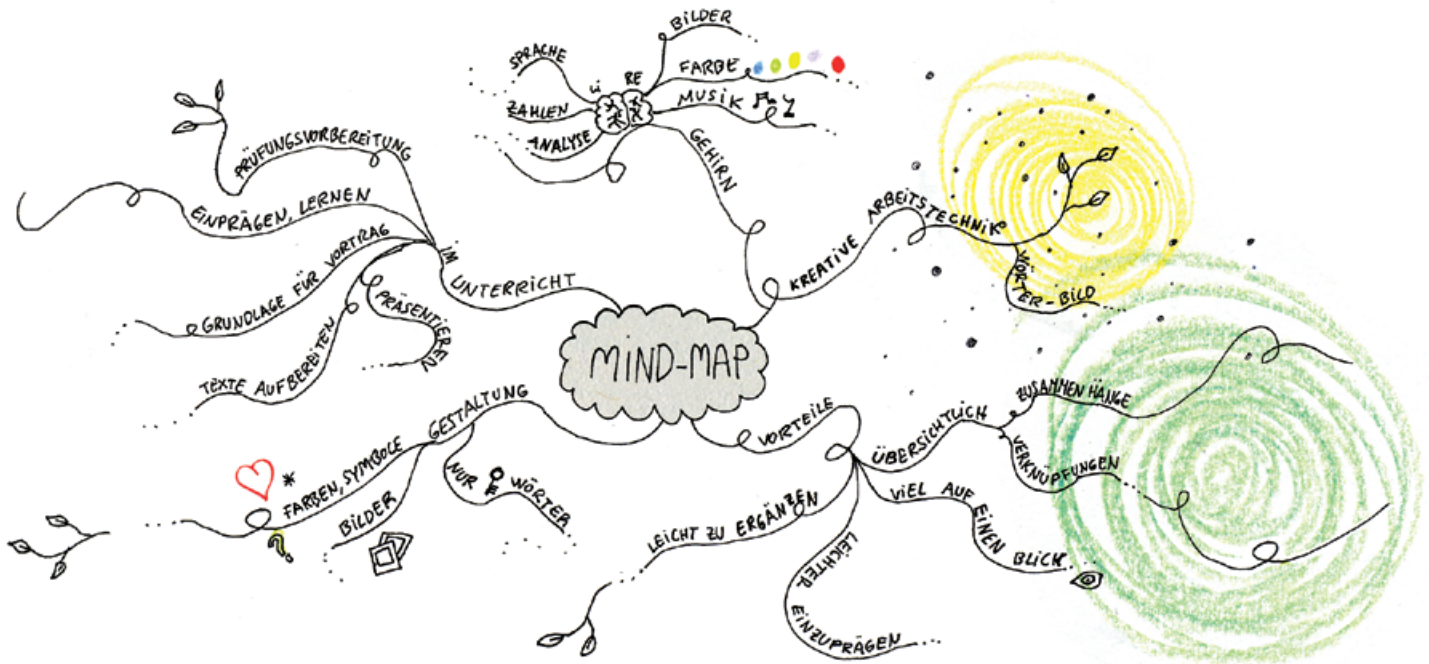 MIND-MAP
IM UNTERRICHT
PRÜFUNGSVORBEREITUNG
EINPRÄGEN, LERNEN
GRUNDLAGE FÜR VORTRAG
TEXTE AUFBEREITEN
PRÄSENTIEREN
GEHIRN
LI
RE
SPRACHE
ZAHLEN
ANALYSE
BILDER
FARBE
MUSIK
KREATIVE ARBEITSTECHNIK
WÖRTER-BILD
VORTEILE
ÜBERSICHTLICH
ZUSAMMENHÄNGE
VERKNÜPFUNGEN
VIEL AUF EINEN BLICK
LEICHTER EINZUPRÄGEN
LEICHT ZU ERGÄNZEN
GESTALTUNG
NUR WÖRTER
BILDER
FARBEN, SYMBOLE
* ?